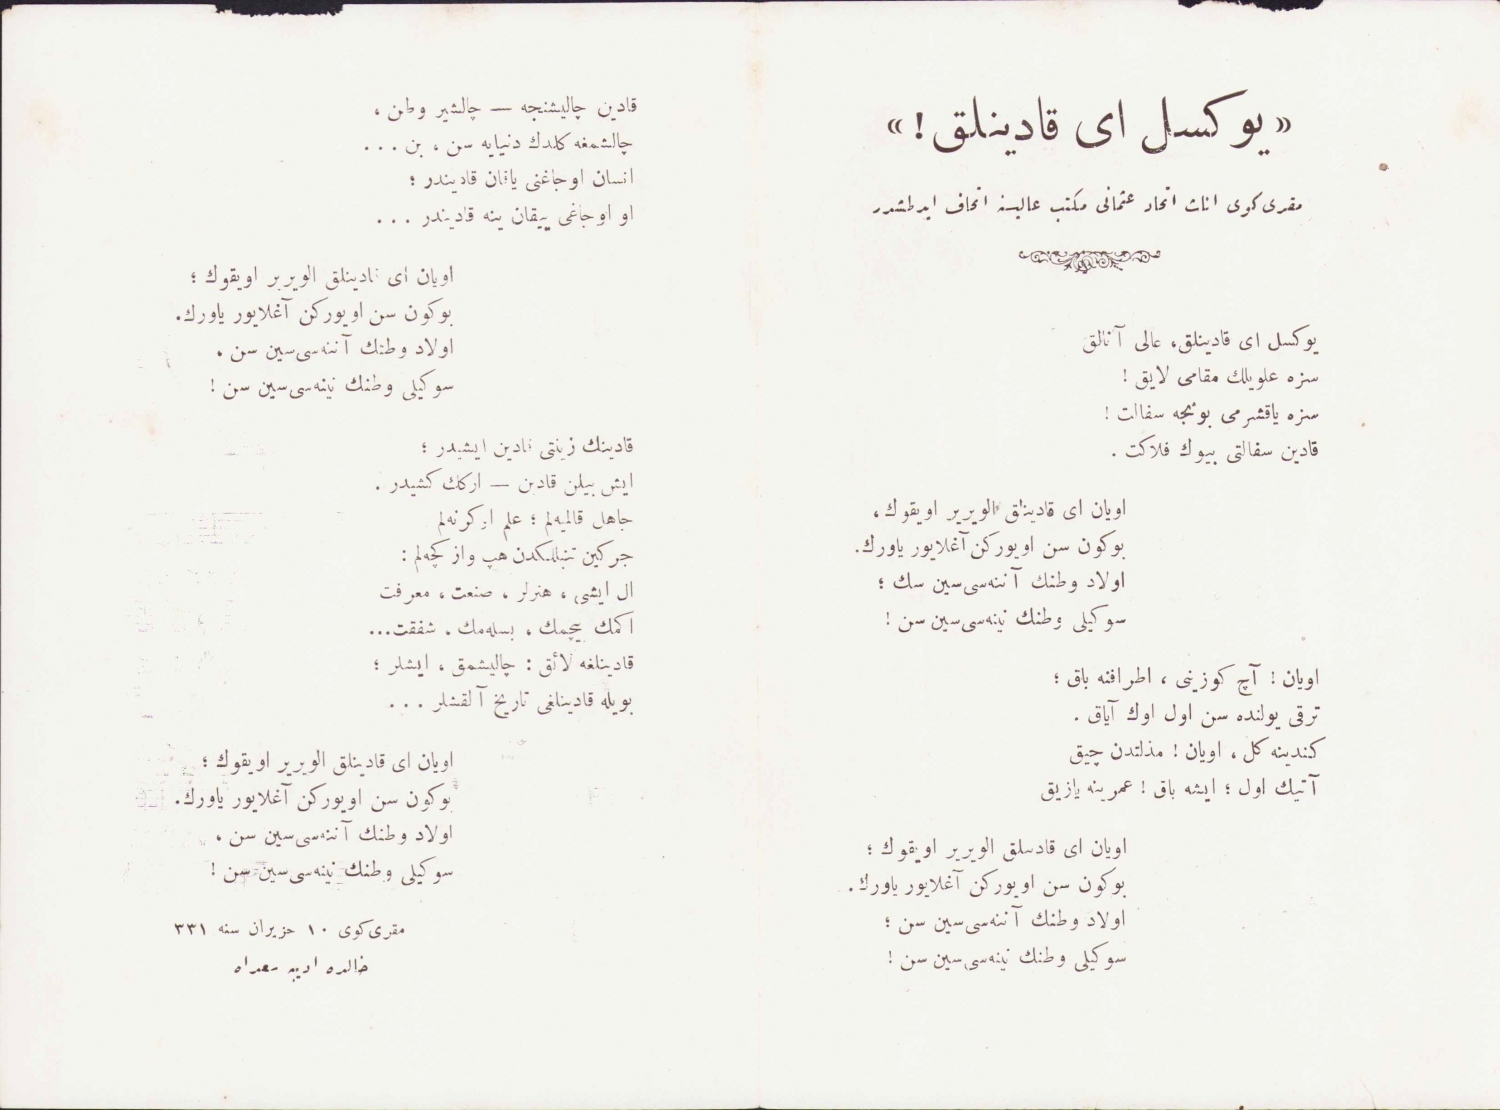 « يوكسل اى قادينلق ! »
مقرى كوى اناث اتحاد عثمانى مكتب عاليسنه اتحاف ايدلمشدر
يوكسل اى قادينلق، عالى آنالق
سزه علويلك مقامى لايق !
سزه ياقشرمى بونجه سفالت !
قادين سفالتى بيوك فلاكت .
اويان اى قادينلق الويرير اويقوك ،
بوكون سن اويوركن آغلايور ياورك.
اولاد وطنك آننه‌سى‌سين سك ؛
سوكيلى وطنك نينه‌سى‌سين سن !
اويان ! آچ كوزينى ، اطرافنه باق ؛
ترقى يولنده سن اول اوك آياق .
كندينه كل ، اويان ! مذلتدن چيق
آتيك اول ؛ ايشه باق ! عمرينه يازيق
اويان اى قادينلق الويرير اويقوك ؛
بوكون سن اويوركن آغلايور ياورك.
اولاد وطنك آننه‌سى‌سين سن ؛
سوكيلى وطنك نينه‌سى‌سين سن !
قادين چاليشنجه — چالشير وطن ،
چالشمغه كلدك دنيايه سن ، بن . . .
انسان اوجاغنى ياقان قاديندر ؛
او اوجاغى ييقان ينه قاديندر . . .
اويان اى قادينلق الويرير اويقوك ؛
بوكون سن اويوركن آغلايور ياورك.
اولاد وطنك آننه‌سى‌سين سن ،
سوكيلى وطنك نينه‌سى‌سين سن !
قادينك زينتى قادين ايشيدر ؛
ايش بيلن قادين — اركك كشيدر .
جاهل قالميه‌لم ؛ علم اوكرنه‌لم
چركين تنبللكدن هپ واز كچه‌لم :
ال ايشى ، هنرلر ، صنعت ، معرفت
اكمك بيچمك ، بسله‌مك ، شفقت...
قادينلغه لائق : چاليشمق ، ايشلر ؛
بويله قادينلغى تاريخ آلقشلر . . .
اويان اى قادينلق الويرير اويقوك ؛
بوكون سن اويوركن آغلايور ياورك.
اولاد وطنك آننه‌سى‌سين سن ،
سوكيلى وطنك نينه‌سى‌سين سن !
مقرى كوى ١٠ حزيران سنه ٣٣١
خالده اديبه